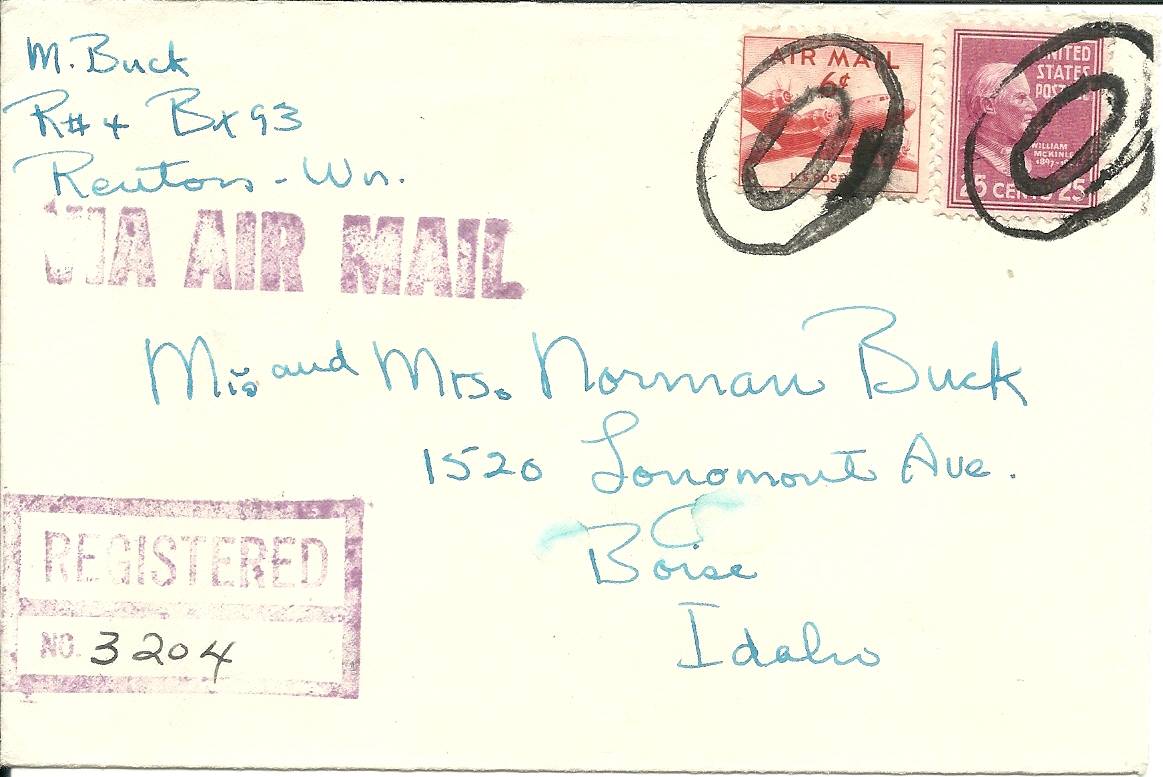 M. Buck
R#4 Bx 93
Renton - Wn.
VIA AIR MAIL
AIR MAIL
6¢
U.S. POST
UNITED
STATES
POSTAGE
WILLIAM
McKINLEY
1897-1
25 CENTS 25
Mr. and Mrs. Norman Buck
1520 Longmont Ave.
Boise
Idaho
REGISTERED
NO. 3204